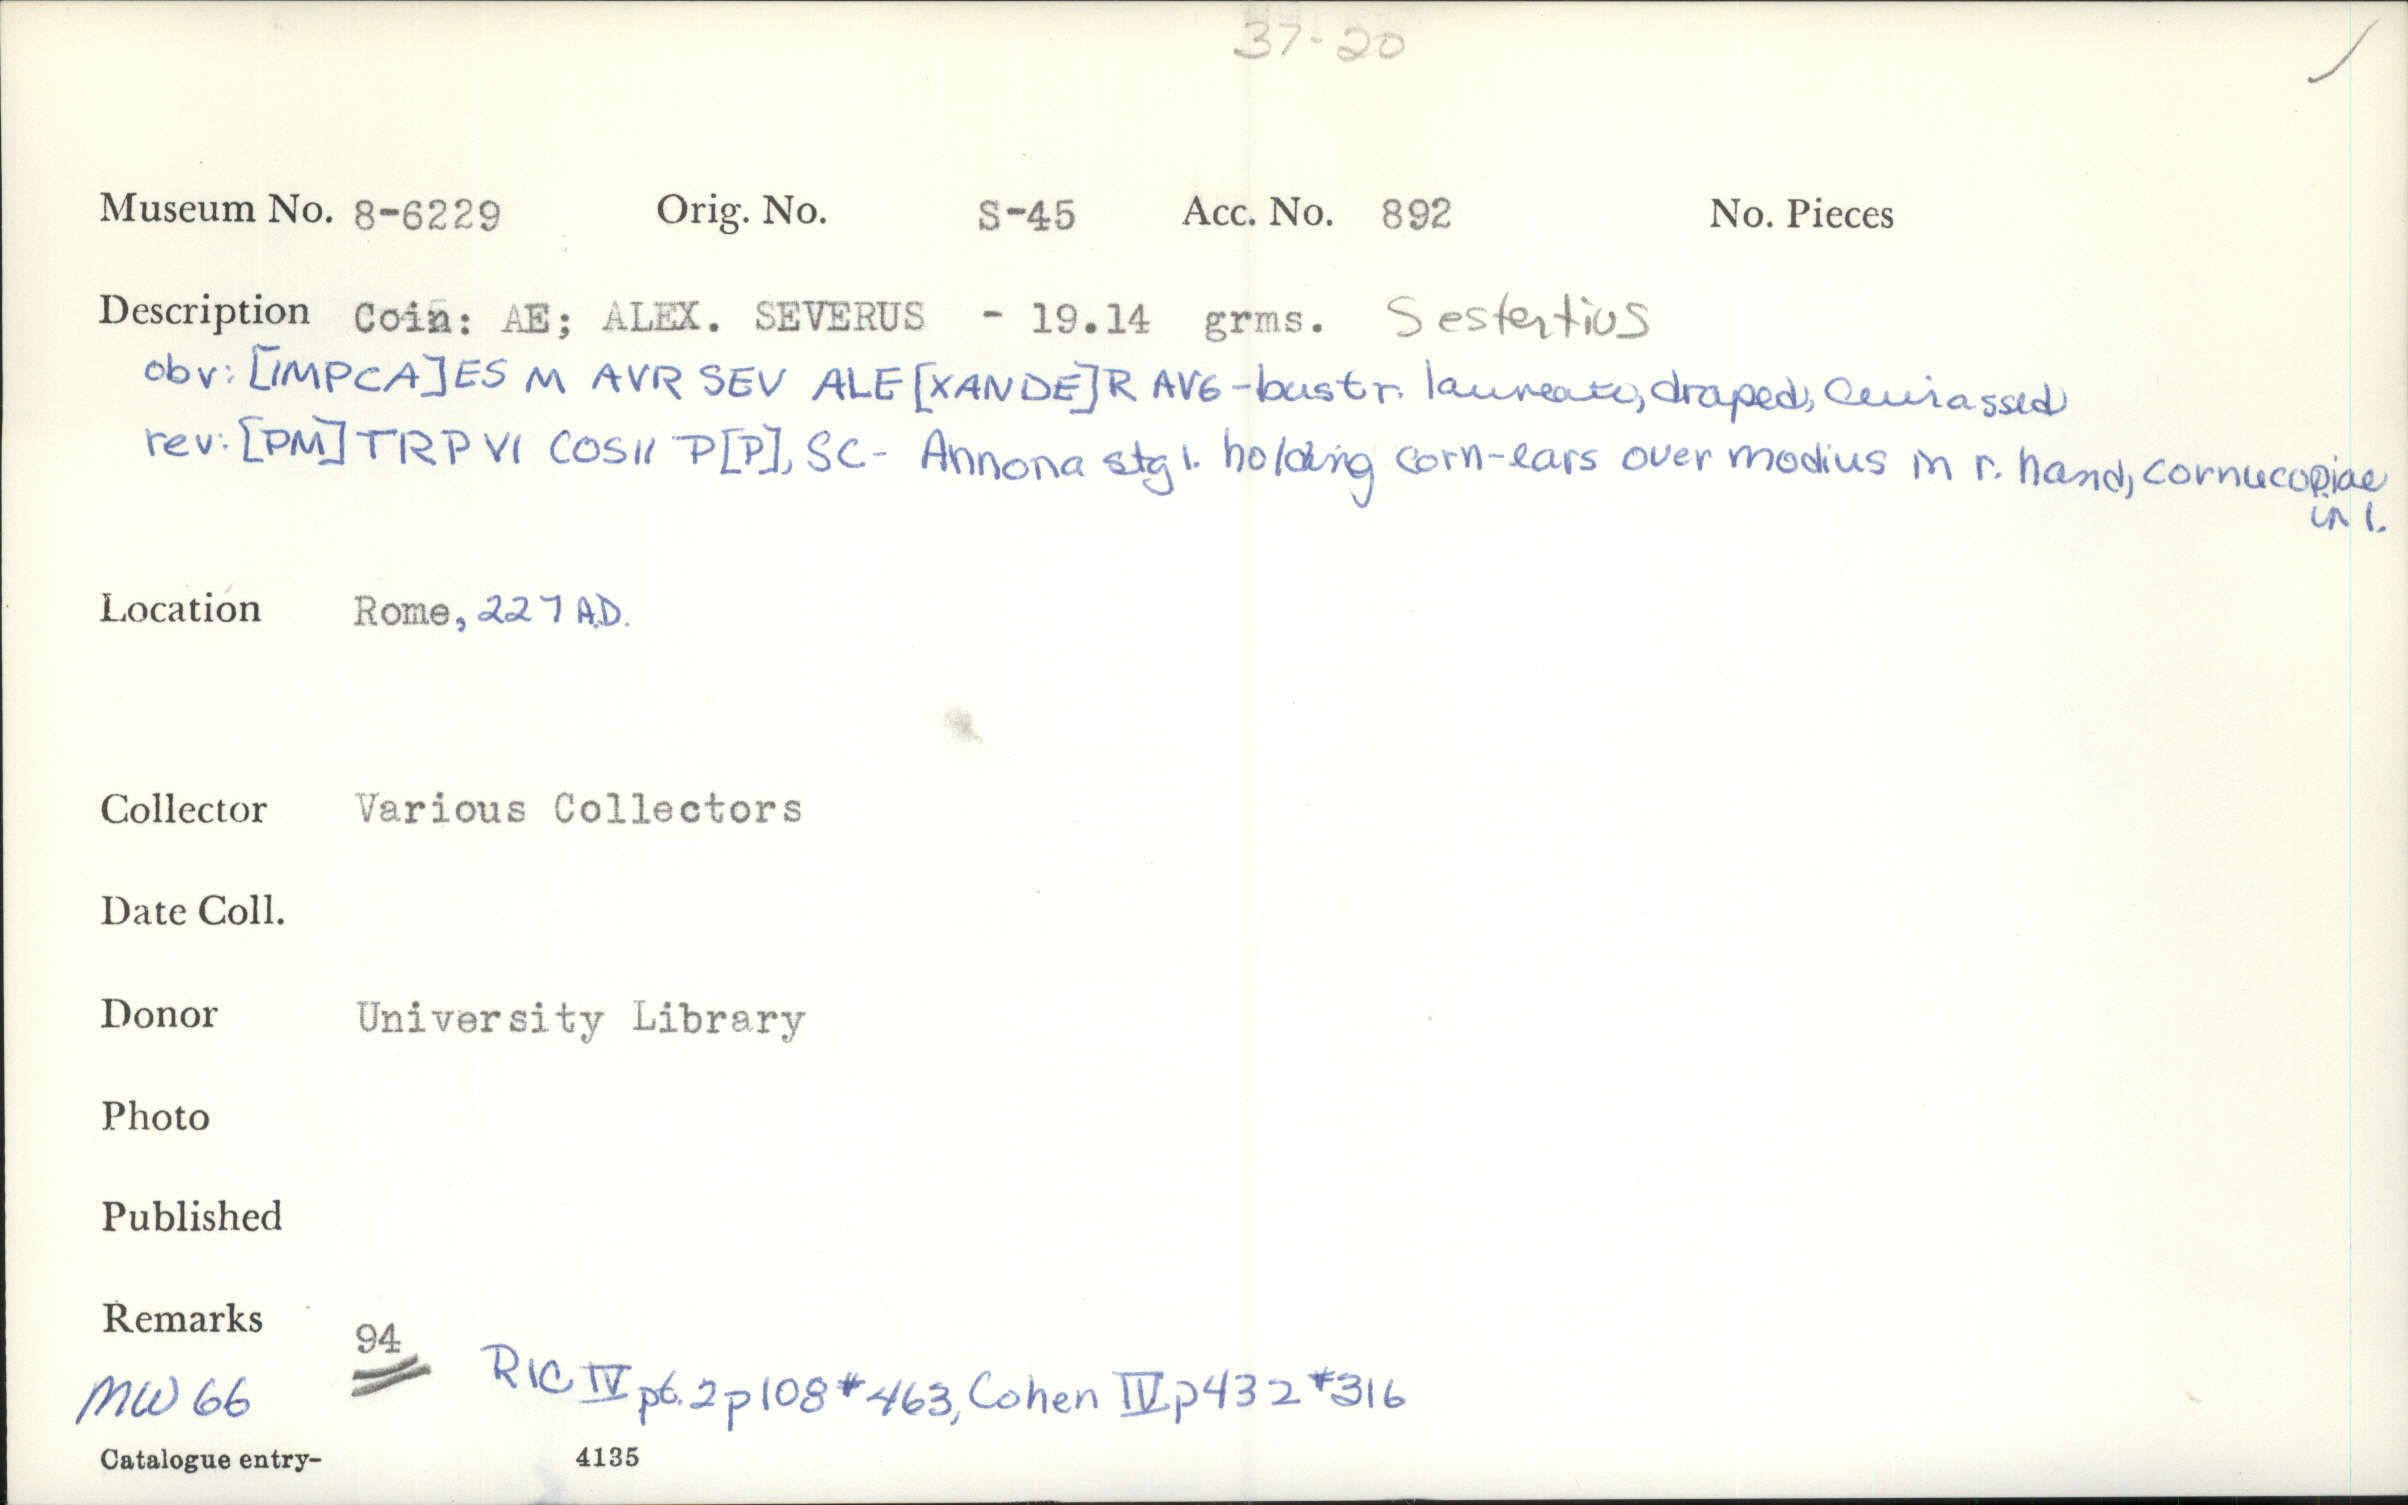 37-20
Museum No. 8-6229 Orig. No. S-45 Acc. No. 892 No. Pieces
Description Coin: AE; ALEX. SEVERUS - 19.14 grms. Sestertius
obv: [IMPCA]ES M AVR SEV ALE[XANDE]R AVG - bust r. laureate, draped, cuirassed
rev: [PM] TRP VI COSII P[P], SC - Annona stg l. holding corn-ears over modius in r. hand, cornucopiae
in l.
Location Rome, 227 A.D.
Collector Various Collectors
Date Coll.
Donor University Library
Photo
Published
Remarks
94
MW 66 RIC IV pt. 2 p108 #463, Cohen IV p432 #316
Catalogue entry- 4135